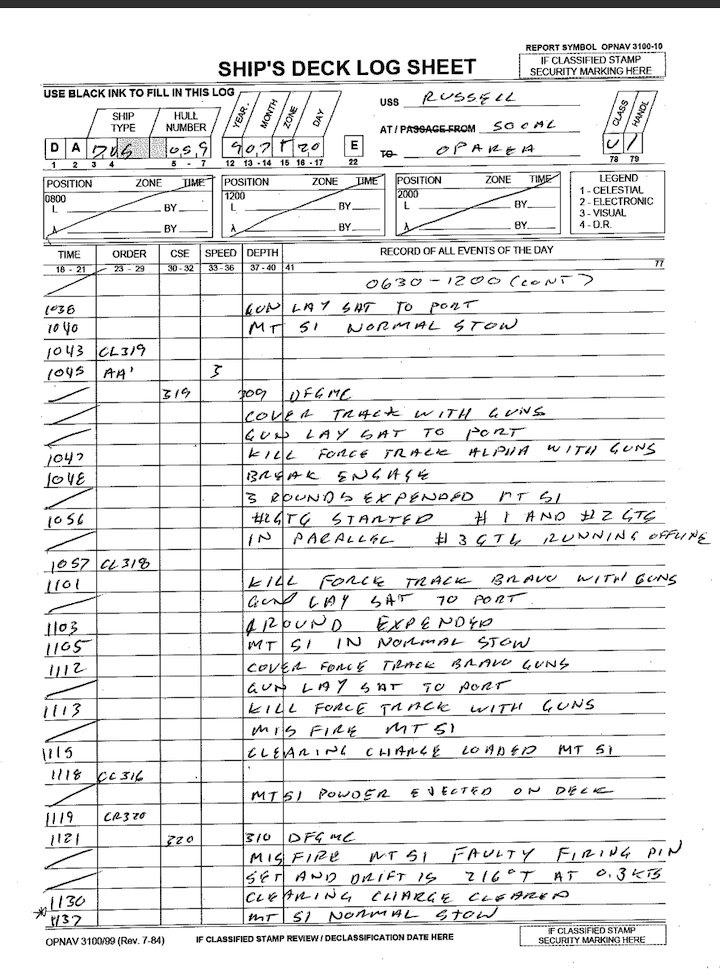 REPORT SYMBOL OPNAV 3100-10
IF CLASSIFIED STAMP
SECURITY MARKING HERE
SHIP'S DECK LOG SHEET
USE BLACK INK TO FILL IN THIS LOG
USS RUSSELL
AT / PASSAGE FROM SOCAL
TO OPAREA
SHIP TYPE HULL NUMBER YEAR MONTH ZONE DAY CLASS HANDL
D A 059 907 T 20 E U 1
1 2 3 4 5 - 7 12 13 - 14 15 16 - 17 22 78 79
POSITION ZONE TIME POSITION ZONE TIME POSITION ZONE TIME LEGEND
0800 1200 2000 1 - CELESTIAL
L BY L BY L BY 2 - ELECTRONIC
3 - VISUAL
λ BY λ BY λ BY 4 - D.R.
TIME ORDER CSE SPEED DEPTH RECORD OF ALL EVENTS OF THE DAY
18 - 21 23 - 29 30 - 32 33-36 37 - 40 41 77
0630-1200 (CONT)
1038 GUN LAY SAT TO PORT
1040 MT 51 NORMAL STOW
1043 CL319
1045 AA' 3
319 309 DFGMC
COVER TRACK WITH GUNS
GUN LAY SAT TO PORT
1047 KILL FORCE TRACK ALPHA WITH GUNS
1048 BREAK ENGAGE
3 ROUNDS EXPENDED MT 51
1056 #2GTG STARTED #1 AND #2 GTG
IN PARALLEL #3 GTG RUNNING OFFLINE
1057 CL318
1101 KILL FORCE TRACK BRAVO WITH GUNS
GUN LAY SAT TO PORT
1103 1 ROUND EXPENDED
1105 MT 51 IN NORMAL STOW
1112 COVER FORCE TRACK BRAVO GUNS
GUN LAY SAT TO PORT
1113 KILL FORCE TRACK WITH GUNS
MISFIRE MT 51
1115 CLEARING CHARGE LOADED MT 51
1118 CL316
MT51 POWDER EJECTED ON DECK
1119 CR320
1121 320 310 DFGMC
MISFIRE MT 51 FAULTY FIRING PIN
SET AND DRIFT IS 216°T AT 0.3 KTS
1130 CLEARING CHARGE CLEARED
* 1137 MT 51 NORMAL STOW
OPNAV 3100/99 (Rev. 7-84) IF CLASSIFIED STAMP REVIEW / DECLASSIFICATION DATE HERE
IF CLASSIFIED STAMP
SECURITY MARKING HERE